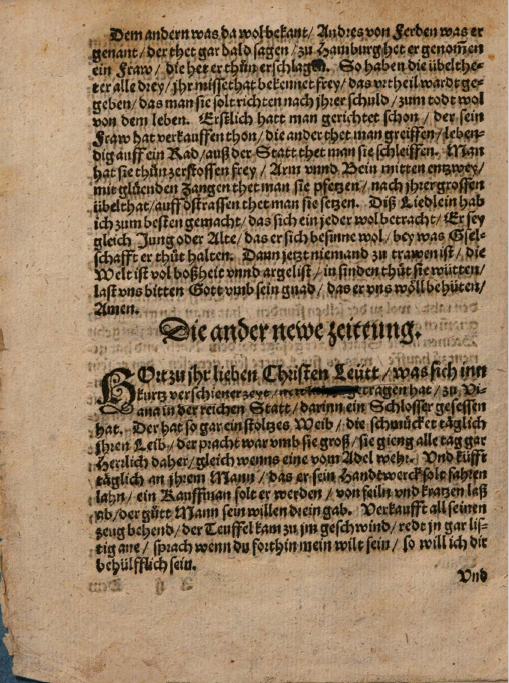 Dem andern was da wol bekant/ Andres von Ferden was er
genant/ der thet gar bald sagen/ zu Hamburg het er genom̄en
ein Fraw/ die het er thůn erschlagen. So haben die übelthe-
ter alle drey/ jhr missethat bekennet frey/ das vrtheil wardt ge-
geben/ das man sie solt richten nach jhrer schuld/ zum todt wol
von dem leben. Erstlich hatt man gerichtet schon/ der sein
Fraw hat verkauffen thon/ die ander thet man greiffen/ leben-
dig auff ein Rad/ auß der Statt thet man sie schleiffen. Man
hat sie thůn zerstossen frey/ Arm vnnd Bein mitten entzwey/
mit glüenden Zangen thet man sie pfetzen/ nach jhrer grossen
übelthat/ auff dstrassen thet man sie setzen. Diß Liedlein hab
ich zum besten gemacht/ das sich ein jeder wol betracht/ Er sey
gleich Jung oder Alte/ das er sich besinne wol/ bey was Gsel-
schafft er thůt halten. Dann jetzt niemand zu trawen ist/ die
Welt ist vol boßheit vnnd argelist/ in sünden thůt sie wütten/
last vns bitten Gott vmb sein gnad/ das er vns wöll behüten/
Amen.
Die ander newe zeittung.
HOrt zu jhr lieben Christen Leütt/ was sich inn
kurtz verschiener zeyt/ getragen hat/ zu Vi-
ana in der reichen Statt/ darinn ein Schlosser gesessen
hat. Der hat so gar ein stoltzes Weib/ die schmucket täglich
jhren Leib/ der pracht war vmb sie groß/ sie gieng alle tag gar
Herrlich daher/ gleich wenns eine vom Adel wehr. Vnd küfft
täglich an jhrem Mann/ das er sein Handtwerck solt fahren
lahn/ ein Kauffman solt er werden/ von feiln vnd kratzen laß
ab/ der gůtt Mann sein willen drein gab. Verkaufft all seinen
zeug behend/ der Teuffel kam zu jm geschwind/ redt jn gar lis-
tig ane/ sprach wenn du forthin mein wilt sein/ so will ich dir
behülfflich sein.
Vnd